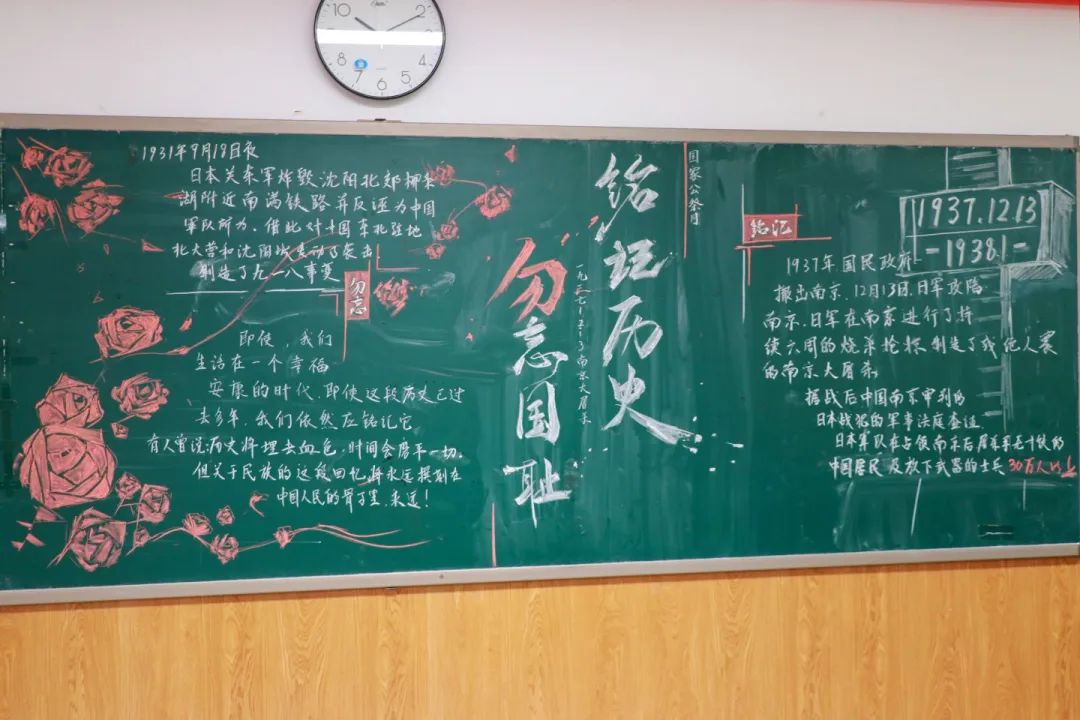 10
2
8
7
6
5
4
1931年9月18日夜
日本关东军炸毁沈阳北郊柳条
湖附近南满铁路并反诬为中国
军队所为,借此对中国东北驻地
北大营和沈阳城发动了袭击
制造了九一八事变
勿忘
即使,我们
生活在一个幸福
安康的时代,即使这段历史已过
去多年,我们依然应铭记它.
有人曾说:历史将埋去血色,时间会磨平一切.
但关于民族的这段回忆,将永远镌刻在
中国人民的骨子里,永远!
勿忘国耻
一九三七·十二·十三南京大屠杀
铭记历史
国家公祭日
铭记
1937.12.13
-1938.1-
1937年,国民政府
搬出南京,12月13日,日军攻陷
南京.日军在南京进行了持
续六周的烧杀抢掠,制造了骇人
的南京大屠杀
据战后中国南京审判的
日本战犯的军事法庭查证,
日本军队在占领南京后屠杀手无寸铁的
中国居民及放下武器的士兵30万人以上